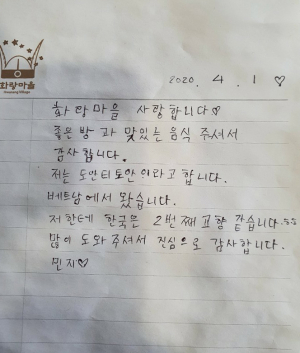 화랑마을
Hwarang Village
2020. 4. 1 ♡
화랑마을 사랑합니다♡
좋은 방과 맛있는 음식 주셔서
감사합니다.
저는 도안티도안이라고 합니다.
베트남에서 왔습니다.
저한테 한국은 2번째 고향 같습니다.ㅎㅎ
많이 도와주셔서 진심으로 감사합니다.
민지♡